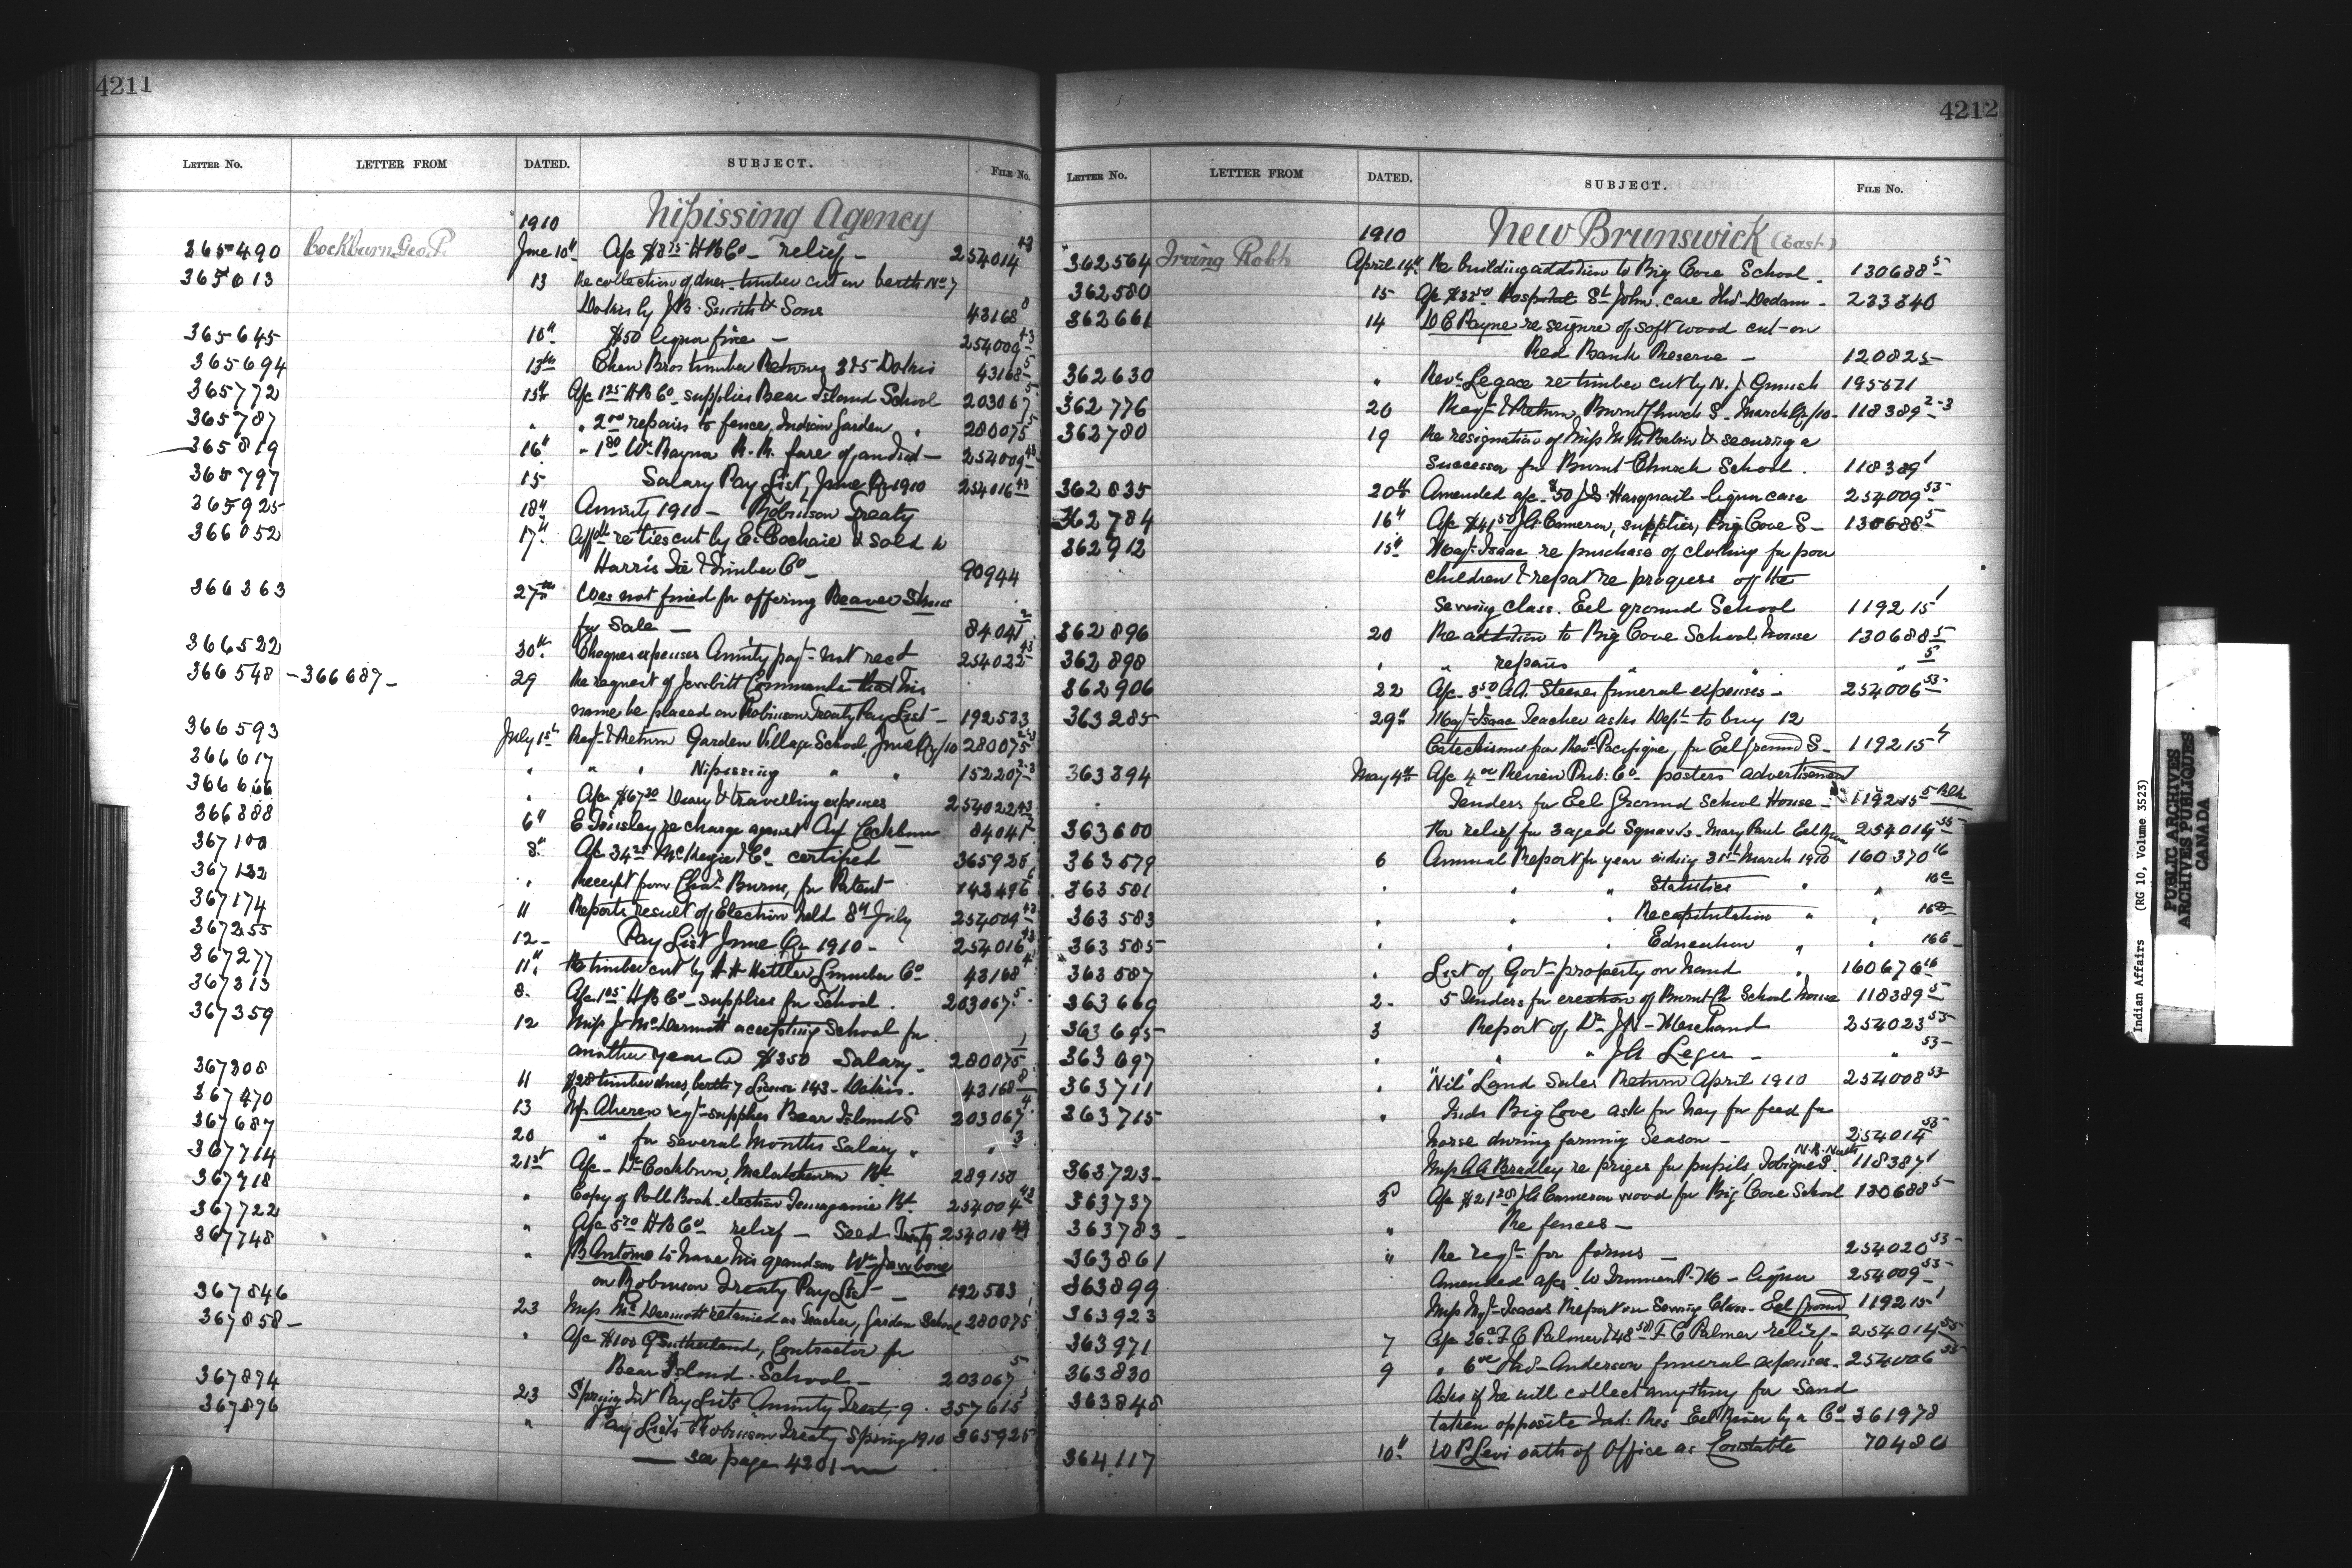 4211
LETTER NO. LETTER FROM DATED. SUBJECT. FILE No.
1910 Nipissing Agency
365490 Cockburn Geo. P. June 10th A/c $8.75 H B Co relief 254014 43
365613 13 Re collection of dues timber cut on berth No 7
Dokis by J.B. Smith & Sons 43168 8
365645 10th $50 liquor fine 254009 43
365694 13th Chew Bros timber Returns 325 Dokis 43168 5
365772 15th A/c 1.25 H B Co supplies Bear Island School 203067 5
365787 " " 2.00 repairs to fence, Indian Garden " 280075 5
365819 16th " 1.80 Wm Rayner R.R. fare of 254009 43
365797 15 Salary Pay List, June Qr 1910 254016 43
365925 18th Annuity 1910 - Robinson Treaty
366052 17th re ties cut by E. Cochaie & sold to
Harris Tie & Timber Co 90944
366363 27th Coes not fined for offering Beaver Skins
for Sale 84041 2
366522 30th Cheques expenses Annuity payt not recd 254022 43
366548 - 366687 29 Re request of Commanda that his
name be placed on Robinson Treaty Pay List 192583
366593 July 1st Reqt & Return Garden Village School, June Qr/10 280075 2-3
366617 " " " Nipissing " " 152207 2-3
366666 " A/c $67.30 Diary & travelling expenses 254022 43
366888 6th E Tinsley re charge against Agt Cockburn 84041 2
367100 8th A/c 34.25 & Co certified 365925
367132 " Receipt from Chas Burns, for Patent 143496
367174 11 Reports result of Election held 8th July 254004 43
367255 12 Pay List June Qr 1910 254016 43
367277 11th Re timber cut by H H Hettler Lumber Co 43168 4
367313 8 A/c 1.05 H B Co supplies for School 203067 5
367359 12 Miss J McDermott accepting School for
another year @ $350 Salary 280075 1
367308 11 $28 timber dues, berth 7 License 143 - Dokis 43168 8
367470 13 Mr Aheren reqt supplies Bear Island S 203067 4
367687 20 " for several months Salary " " 3
367714 21st A/c Dr Cockburn, Matatchewan Bd 289150
367718 " Copy of Poll Book election Temagamie Bd 254004 43
367722 " A/c 5.70 H B Co relief - Seed 254018 43
367748 " B Antoine to have his grandson Wm Jawbone
on Robinson Treaty Pay List 192583
367846 23 Miss McDermott retained as Teacher, Garden School 280075 1
367858 " A/c $100 G Sutherland, Contractor for
Bear Island School 203067 5
367894 23 Pay Lists Annuity Treaty 9 357615
367896 " Pay Lists Robinson Treaty Spring 1910 365925
see page 4201
4212
LETTER NO. LETTER FROM DATED. SUBJECT. FILE No.
1910 New Brunswick (East)
362564 Irving Robt April 14th Re building addition to Big Cove School 130688 5
362580 15 A/c Hospital St John, care Thos Dedam 233840
362661 14 D C Payne re seizure of soft wood cut on
Red Bank Reserve 120825
362630 " Revd Legace re timber cut by N. J. 195571
362776 20 Reqt & Return, Burnt Church S. March Qr/10 118389 2-3
362780 19 Re resignation of Miss & securing a
Successor for Burnt Church School 118389 1
362835 20th Amended a/c $50 J.S. Harquail liquor case 254009 53
362784 16th A/c $41.50 J.A. Cameron, supplies, Big Cove S 130688 5
362912 15th Isaac re purchase of clothing for poor
children & report re progress of the
Sewing class. Eel ground School 119215 1
362896 20 Re addition to Big Cove School House 130688 5
362898 " " repairs " " " 5
362906 22 A/c 3.50 A.A. Steeves funeral expenses 254006 53
363285 29th Isaac Teacher asks Dept to buy 12
Catechisms from Revd Pacifique, for Eel Ground S 119215 4
363394 May 4th A/c 4.00 Review Pub. Co posters advertisement
Tenders for Eel Ground School House 119215 5
363600 Re relief for 3 aged Squaws - Mary Paul 254014 53
363579 6 Annual Report for year ending 31st March 1910 160370 16
363581 " " " Statistics " " 16C
363583 " " " Recapitulation " " 16D
363585 " " " Education " " 16E
363587 " List of Govt property on hand " 160676 16
363669 2 5 Tenders for erection of Burnt Ch School House 118389 5
363695 3 Report of Dr J N Marchand 254023 53
363697 " " " J A Leger " 53
363711 " "Nil" Land Sales Return April 1910 254008 53
363715 " Inds Big Cove ask for hay for feed for
horse during farming Season 254014 53
N.B. North
363723 Miss A A Bradley re prizes for pupils, Tobique S. 118387 1
363737 5 A/c $21.28 J A Cameron wood for Big Cove School 130688 5
363783 " Re fences
363861 " Re reqt for forms 254020 53
363899 Amended a/cs W P.M. - liquor 254009 53
363923 Miss Isaacs Report on Sewing Class - Eel Ground 119215 1
363971 7 A/c F C Palmer & 48.50 F C Palmer relief 254014 53
363830 9 " 6.00 Thos Anderson funeral expenses 254006 53
363848 Asks if he will collect anything for Sand
taken opposite Ind. Res Eel River by a Co 361978
364117 10th W P Levi oath of Office as Constable 70480
Indian Affairs (RG 10, Volume 3523)
PUBLIC ARCHIVES
ARCHIVES PUBLIQUES
CANADA